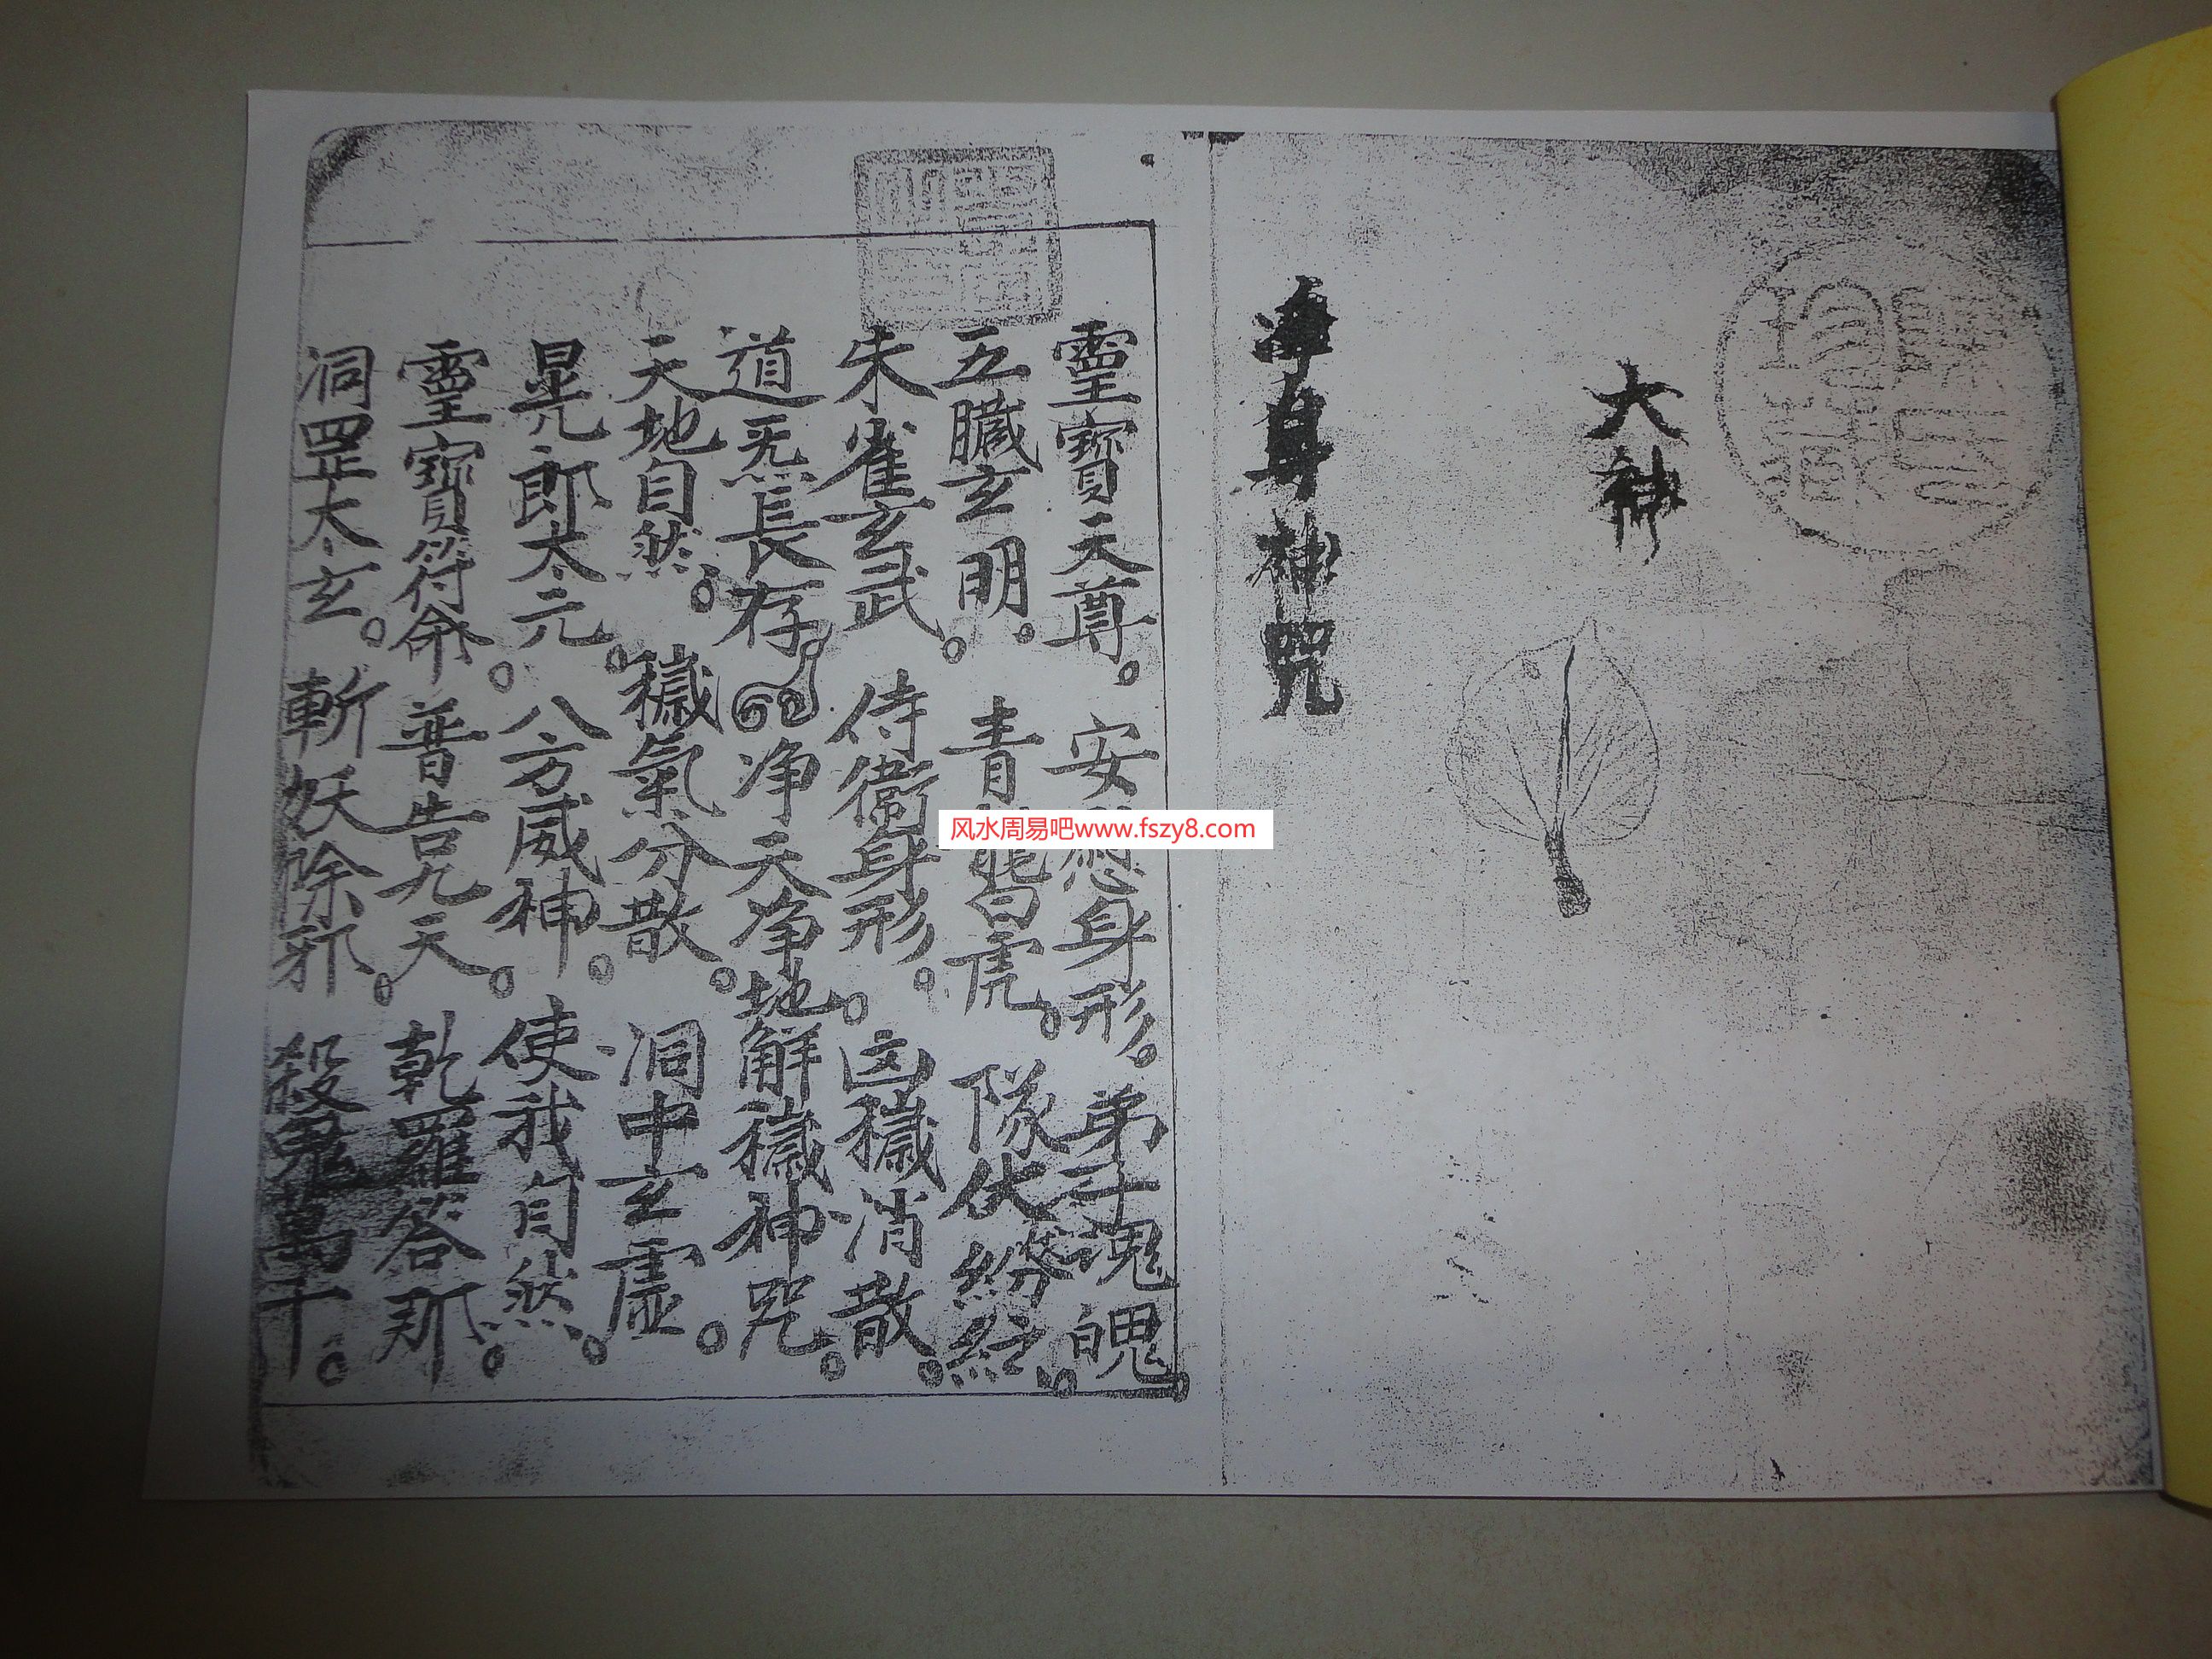 大神
净身神咒
靈寶天尊。安慰身形。弟子魂魄。
五臟玄明。青龍白虎。隊伏紛紜。
朱雀玄武。侍衛身形。凶穢消散。
道炁長存 净天净地解穢神咒。
天地自然。穢氣分散。洞中玄虛。
晃郎太元。八方威神。使我自然。
靈寶符命。普告九天。乾羅答那。
洞罡太玄。斬妖除邪。殺鬼萬千。
风水周易吧www.fszy8.com